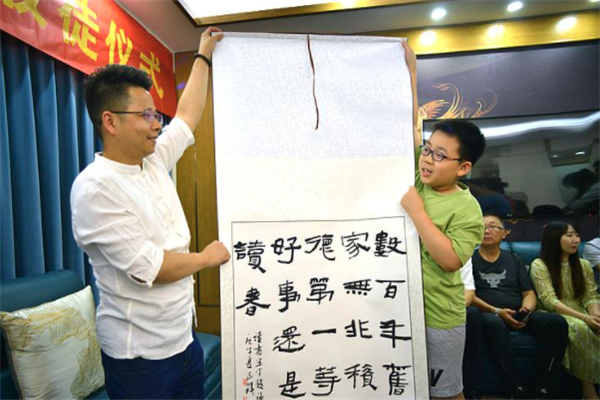 徒仪式
數百年舊
家無非積
德第一等
好事還是
讀書